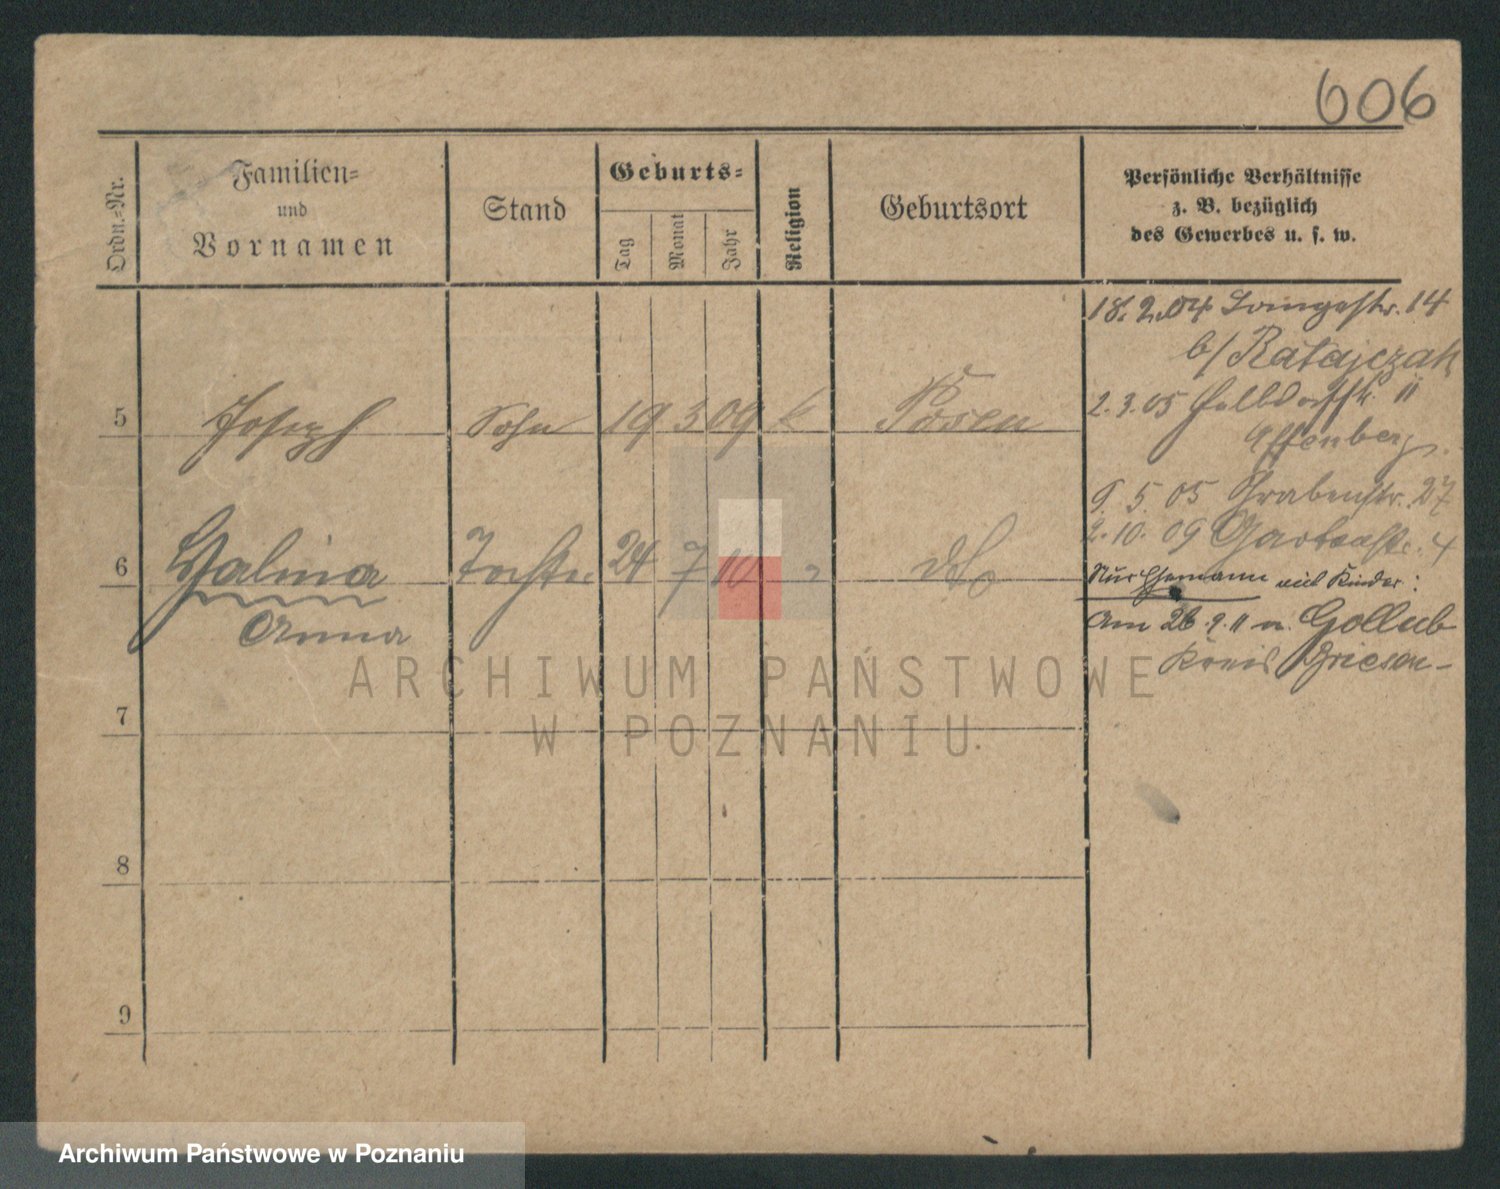 606
Ordn.-Nr.
Familien-
und
Vornamen
Stand
Geburts-
Tag
Monat
Jahr
Religion
Geburtsort
Persönliche Verhältnisse
z. B. bezüglich
des Gewerbes u. s. w.
18.2.04 14
b/ Ratajczak
5 Joseph Sohn 19 3 09 k Posen
2.3.05 11
Affenberg.
9.5.05 Grabenstr. 27
2.10.09 Gartenstr. 4
6 Halina Tochter 24 7 10 " do
Anna
Nur Ehemann und Kinder:
Am 26.9.11 n. Gollub
Kreis Briesen
ARCHIWUM PAŃSTWOWE
W POZNANIU
7
8
9
Archiwum Państwowe w Poznaniu